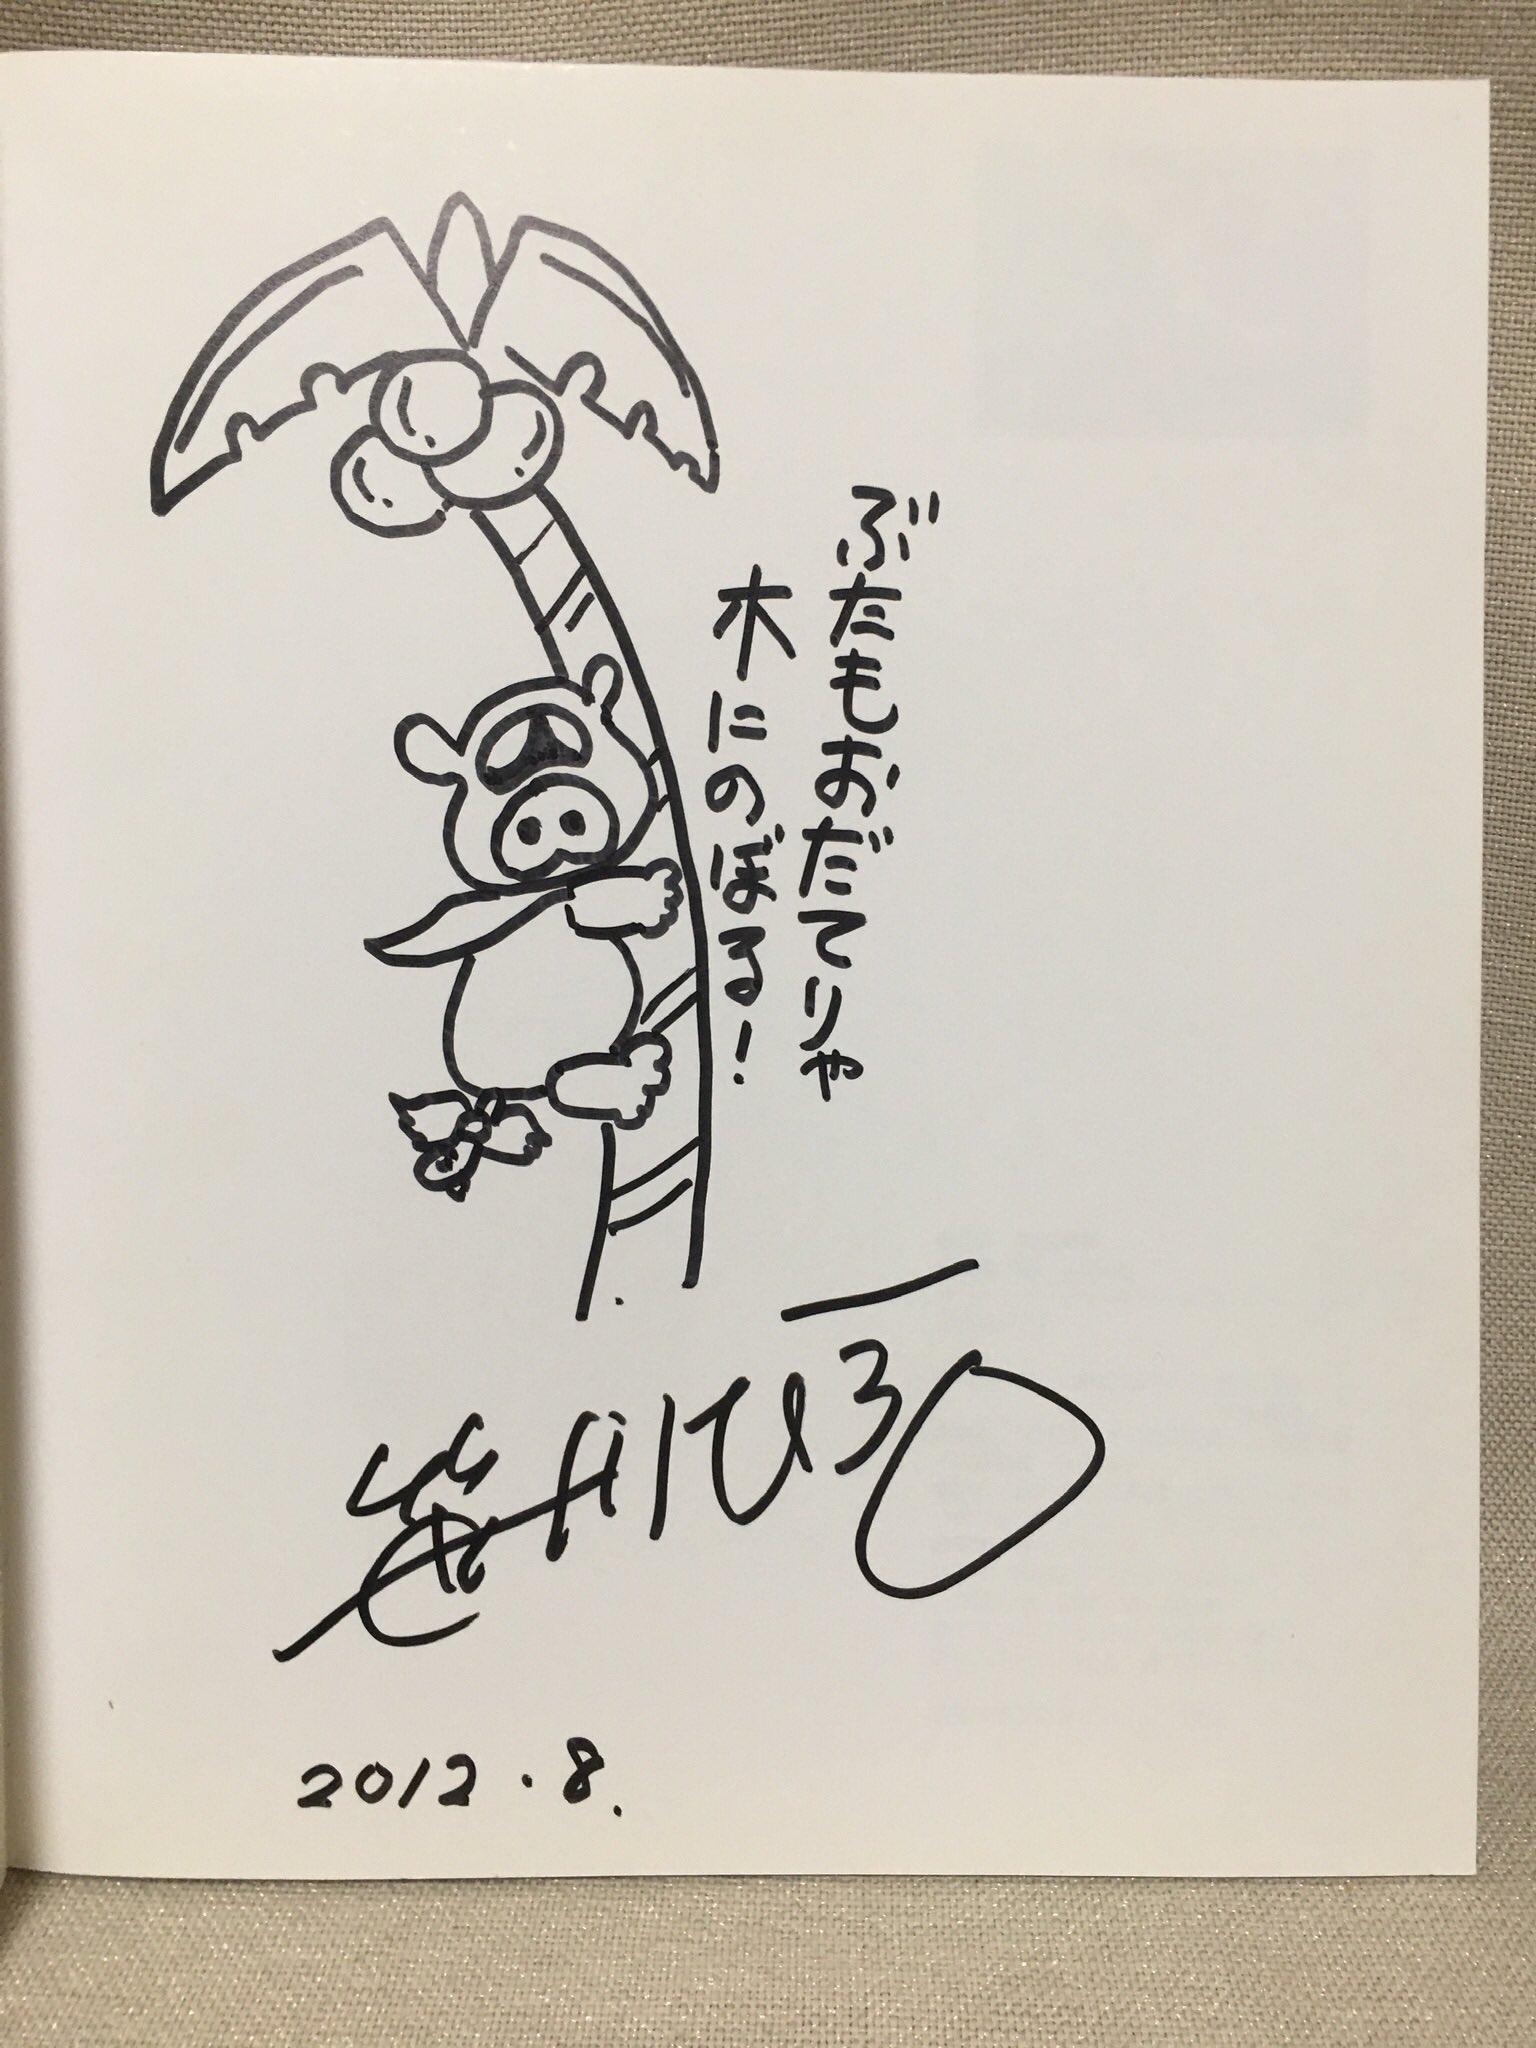 ぶたもおだてりゃ
木にのぼる!
笹川ひろし
2012.8.